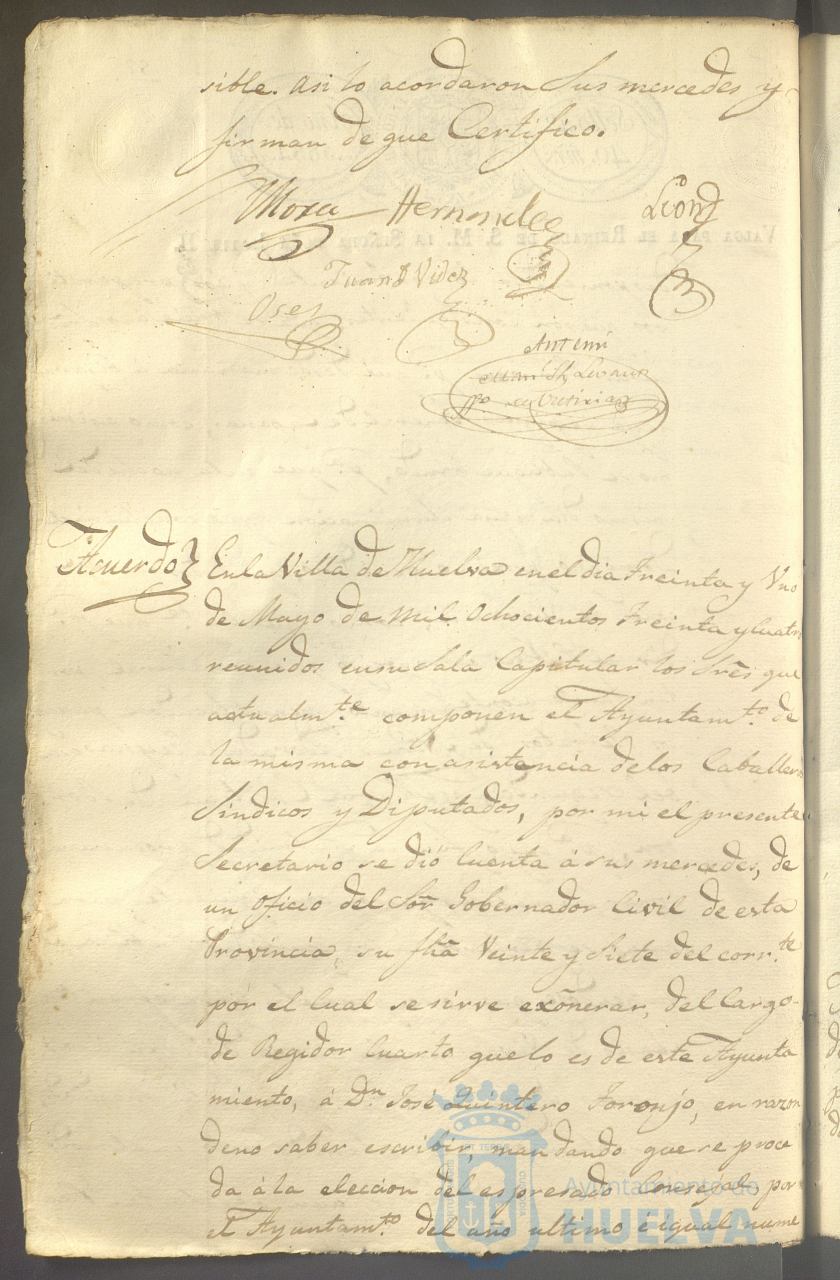 sible. Asi lo acordaron Sus mercedes y
firman de que Certifico.
Mora Hernandez Leon
Juan Videz
Oses
Antemi
Acuerdo En la Villa de Huelva en el dia Treinta y Uno
de Mayo de Mil Ochocientos Treinta y cuatro
reunidos en su Sala Capitular los Sres que
actualmte componen el Ayuntamto de
la misma con asistencia de los Caballeros
Sindicos y Diputados, por mi el presente
Secretario se dió Cuenta á sus mercedes, de
un oficio del Sor Gobernador Civil de esta
Provincia, su fha Veinte y Siete del corrte
por el Cual se sirve exônerar, del Cargo
de Regidor Cuarto que lo es de este Ayunta
miento, á Dn José Quintero Toronjo, en razon
de no saber escribir, mandando que se proce
da á la eleccion del espresado Consejal, por
el Ayuntamto del año ultimo é igual nume
Ayuntamiento de
HUELVA